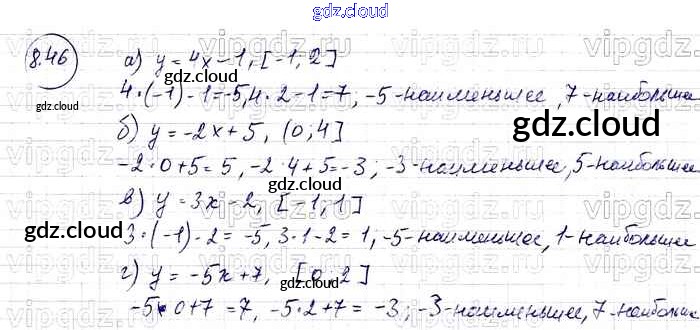 gdz.cloud
8.46
а) y = 4x - 1, [-1; 2]
gdz.cloud
4·(-1) - 1 = -5, 4·2 - 1 = 7, -5 - наименьшее, 7 - наибольшее
gdz.cloud
б) y = -2x + 5, (0; 4]
gdz.cloud
-2·0 + 5 = 5, -2·4 + 5 = -3; -3 - наименьшее, 5 - наибольшее
gdz.cloud
в) y = 3x - 2, [-1; 1]
gdz.cloud
3·(-1) - 2 = -5, 3·1 - 2 = 1, -5 - наименьшее, 1 - наибольшее
gdz.cloud
г) y = -5x + 7, [0; 2]
gdz.cloud
-5·0 + 7 = 7, -5·2 + 7 = -3; -3 - наименьшее, 7 - наибольш
vipgdz